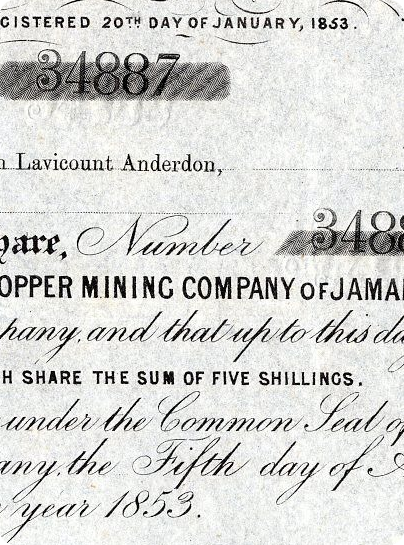 GISTERED 20TH DAY OF JANUARY, 1853.
34887
n Lavicount Anderdon,
hare, Number 3488
OPPER MINING COMPANY OF JAMAI
pany, and that up to this da
H SHARE THE SUM OF FIVE SHILLINGS.
under the Common Seal of
any, the Fifth day of A
year 1853.